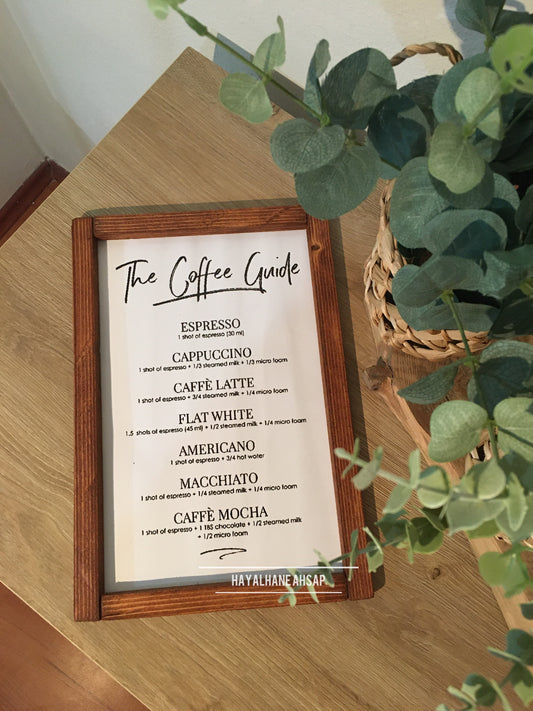 The Coffee Guide
ESPRESSO
1 shot of espresso (30 ml)
CAPPUCCINO
1 shot of espresso + 1/3 steamed milk + 1/3 micro foam
CAFFÈ LATTE
1 shot of espresso + 3/4 steamed milk + 1/4 micro foam
FLAT WHITE
1,5 shots of espresso (45 ml) + 1/2 steamed milk + 1/4 micro foam
AMERICANO
1 shot of espresso + 3/4 hot water
MACCHIATO
1 shot of espresso + 1/4 steamed milk + 1/4 micro foam
CAFFÈ MOCHA
1 shot of espresso + 1 TBS chocolate + 1/2 steamed milk
+ 1/2 micro foam
HAYALHANE AHSAP